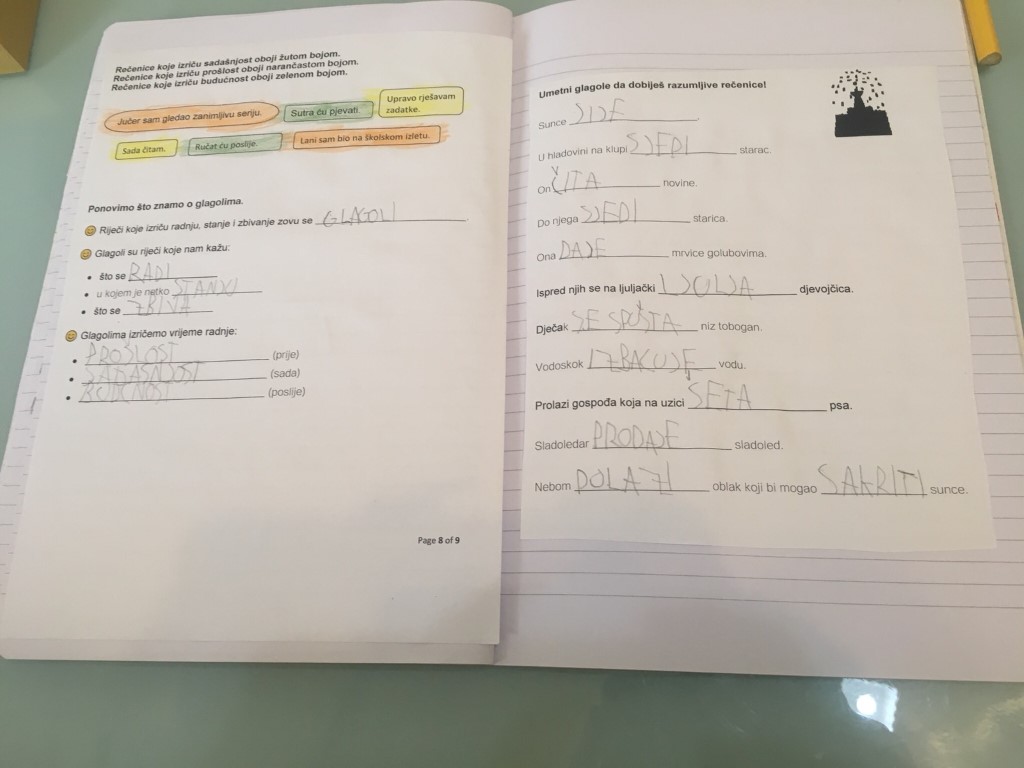 Rečenice koje izriču sadašnjost oboji žutom bojom.
Rečenice koje izriču prošlost oboji narančastom bojom.
Rečenice koje izriču budućnost oboji zelenom bojom.
Jučer sam gledao zanimljivu seriju.
Sutra ću pjevati.
Upravo rješavam
zadatke.
Sada čitam.
Ručat ću poslije.
Lani sam bio na školskom izletu.
Ponovimo što znamo o glagolima.
Riječi koje izriču radnju, stanje i zbivanje zovu se GLAGOLI
Glagoli su riječi koje nam kažu:
• što se RADI
• u kojem je netko STANJU
• što se ZBIVA
Glagolima izričemo vrijeme radnje:
• PROŠLOST (prije)
• SADAŠNJOST (sada)
• (poslije)
Page 8 of 9
Umetni glagole da dobiješ razumljive rečenice!
Sunce SIJE
U hladovini na klupi SJEDI starac.
On ČITA novine.
Do njega SJEDI starica.
Ona DAJE mrvice golubovima.
Ispred njih se na ljuljački LJULJA djevojčica.
Dječak SE SPUŠTA niz tobogan.
Vodoskok IZBACUJE vodu.
Prolazi gospođa koja na uzici ŠETA psa.
Sladoledar PRODAJE sladoled.
Nebom DOLAZI oblak koji bi mogao SAKRITI sunce.